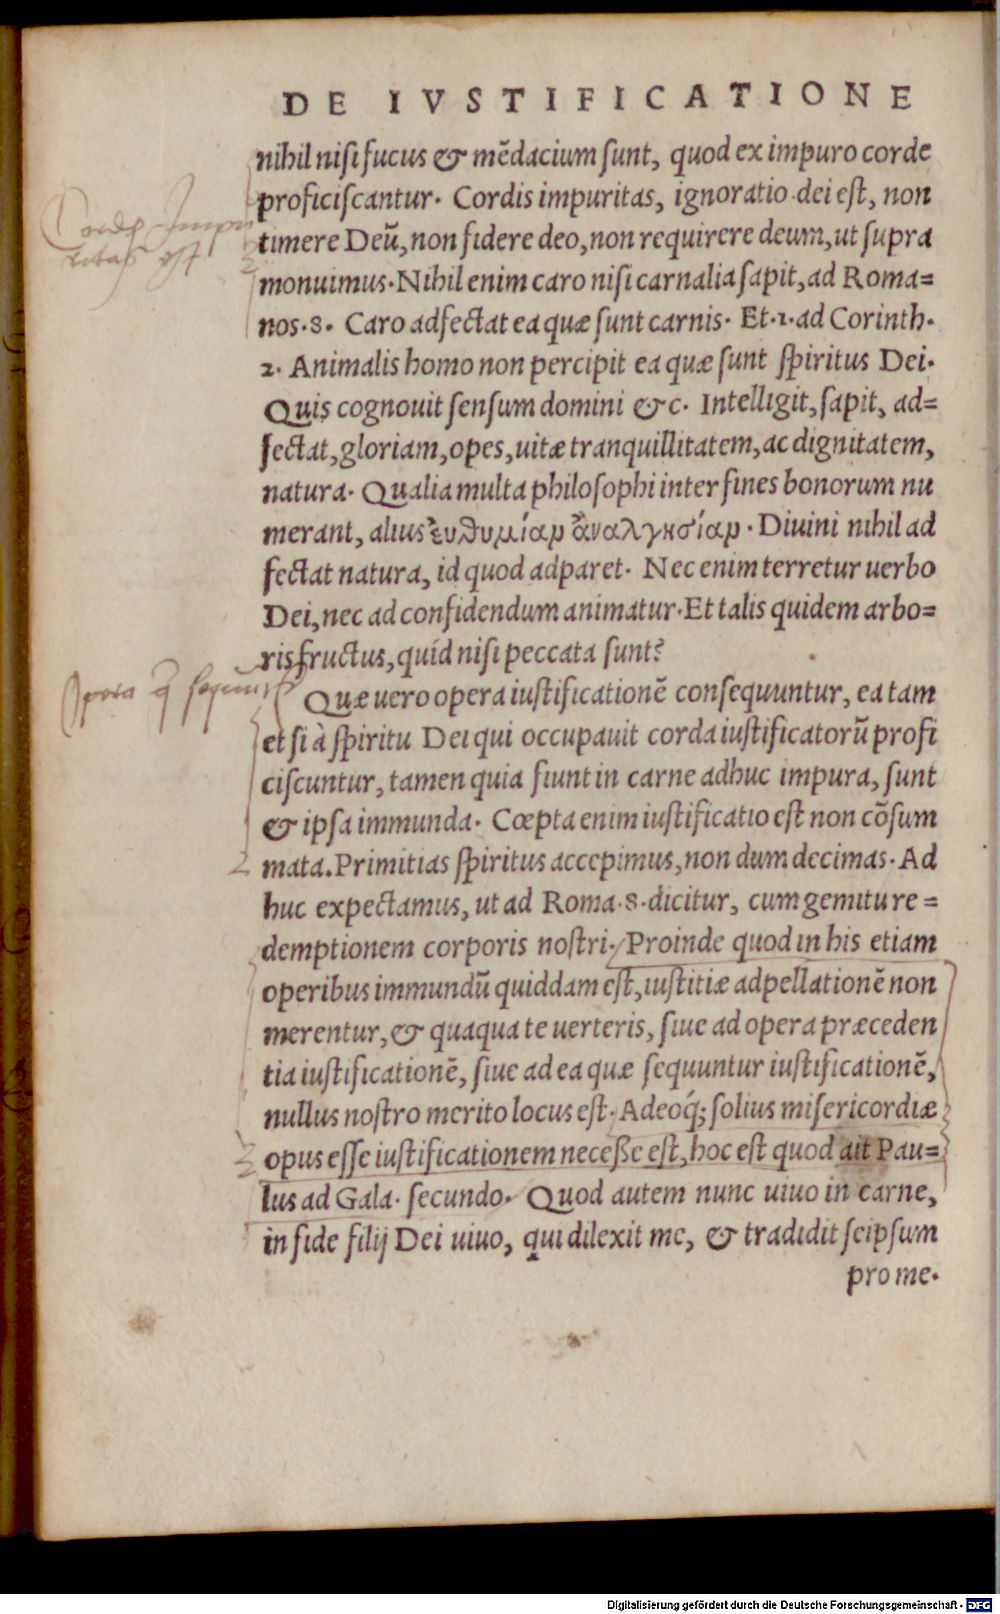 DE IVSTIFICATIONE
nihil nisi fucus & mẽdacium ſunt, quod ex impuro corde
proficiſcantur. Cordis impuritas, ignoratio dei eſt, non
timere Deũ, non fidere deo, non requirere deum, ut ſupra
monuimus. Nihil enim caro niſi carnalia ſapit, ad Roma=
nos.8. Caro adfectat ea quæ ſunt carnis. Et.1.ad Corinth.
2. Animalis homo non percipit ea quæ ſunt ſpiritus Dei.
Quis cognouit ſenſum domini &c. Intelligit, ſapit, ad=
fectat, gloriam, opes, uitæ tranquillitatem, ac dignitatem,
natura. Qualia multa philoſophi inter fines bonorum nu
merant, alius ἐυθυμίαν ἀναλγησίαν. Diuini nihil ad
fectat natura, id quod adparet. Nec enim terretur uerbo
Dei, nec ad confidendum animatur. Et talis quidem arbo=
ris fructus, quid niſi peccata ſunt?
Quæ uero opera iuſtificationẽ conſequuntur, ea tam
et ſi à ſpiritu Dei qui occupauit corda iuſtificatorũ profi
ciſcuntur, tamen quia fiunt in carne adhuc impura, ſunt
& ipſa immunda. Cœpta enim iuſtificatio eſt non cõſum
mata. Primitias ſpiritus accepimus, non dum decimas. Ad
huc expectamus, ut ad Roma.8.dicitur, cum gemitu re=
demptionem corporis noſtri. Proinde quod in his etiam
operibus immundũ quiddam eſt, iuſtitiæ adpellationẽ non
merentur, & quaqua te uerteris, ſiue ad opera præceden
tia iuſtificationẽ, ſiue ad ea quæ ſequuntur iuſtificationẽ,
nullus noſtro merito locus eſt. Adeoq́; ſolius miſericordiæ
opus eſſe iuſtificationem neceſſe eſt, hoc eſt quod ait Pau=
lus ad Gala. ſecundo. Quod autem nunc uiuo in carne,
in fide filij Dei uiuo, qui dilexit me, & tradidit ſeipſum
pro me.
Cordis Impu
ritas est
Opera q̃ sequunt
Digitalisierung gefördert durch die Deutsche Forschungsgemeinschaft - DFG